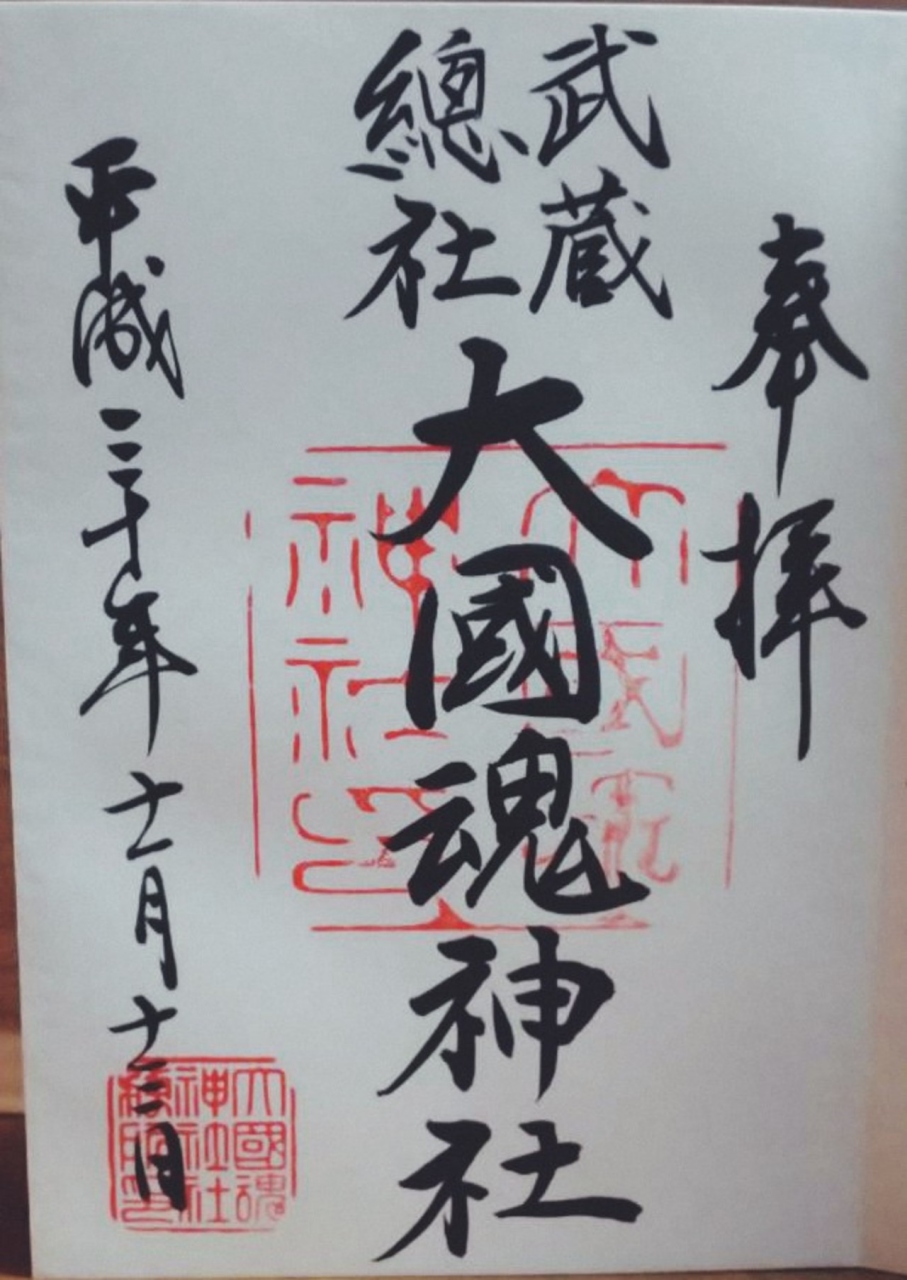 奉拝
武蔵
總社
大國魂神社
平成三十年十一月十三日
大國魂
神社印
大國魂
神社社
務所印